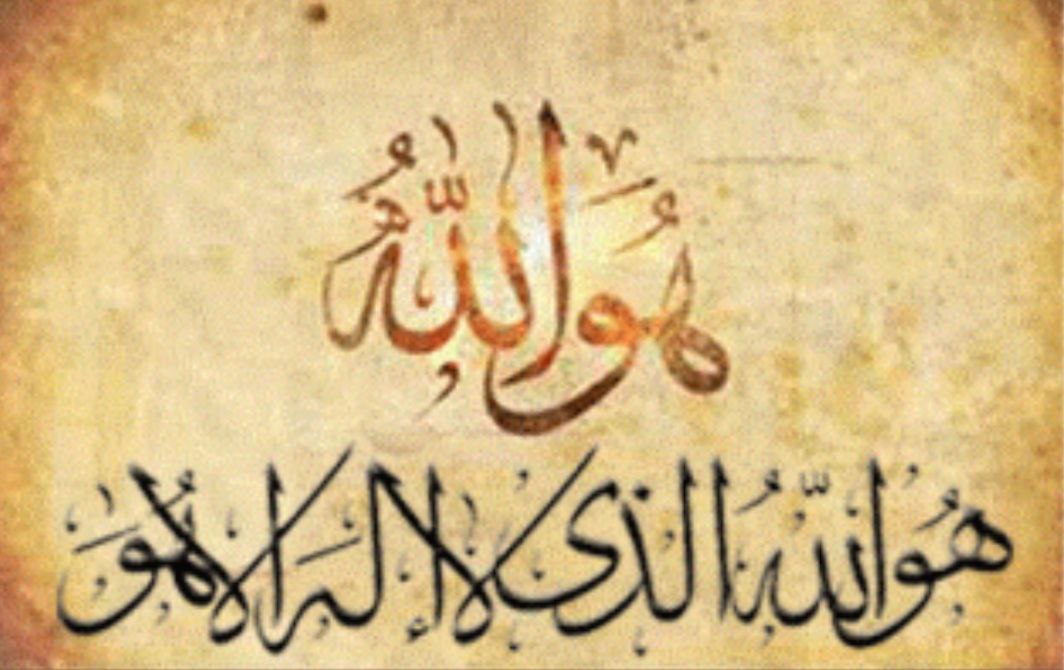 هُوَ اللّٰهُ
هُوَ اللّٰهُ الَّذِی لَا إِلٰهَ إِلَّا هُوَ